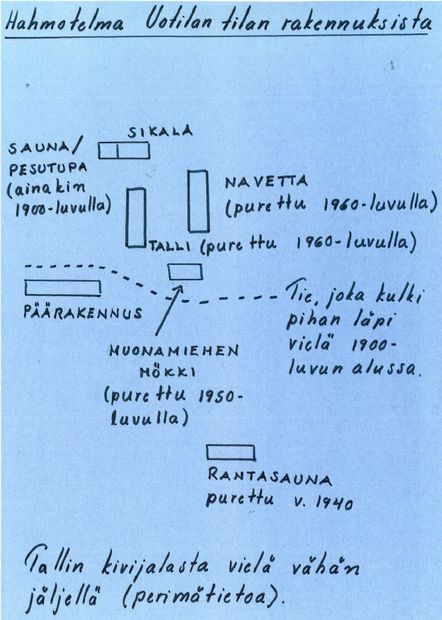 Hahmotelma Uotilan tilan rakennuksista
SIKALA
SAUNA/
PESUTUPA
(ainakin
1900-luvulla)
NAVETTA
(purettu 1960-luvulla)
TALLI (purettu 1960-luvulla)
PÄÄRAKENNUS
Tie, joka kulki
pihan läpi
vielä 1900-
luvun alussa.
MUONAMIEHEN
MÖKKI
(purettu 1950-
luvulla)
RANTASAUNA
purettu v. 1940
Tallin kivijalasta vielä vähän
jäljellä (perimätietoa).